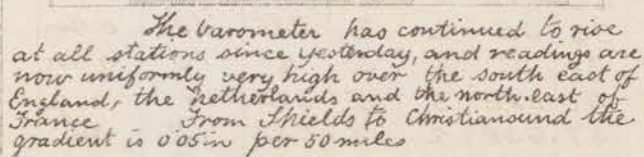 The barometer has continued to rise
at all stations since yesterday, and readings are
now uniformly very high over the south east of
England, the Netherlands and the north-east of
France    From Shields to Christiansund the
gradient is 0·05 in per 50 miles